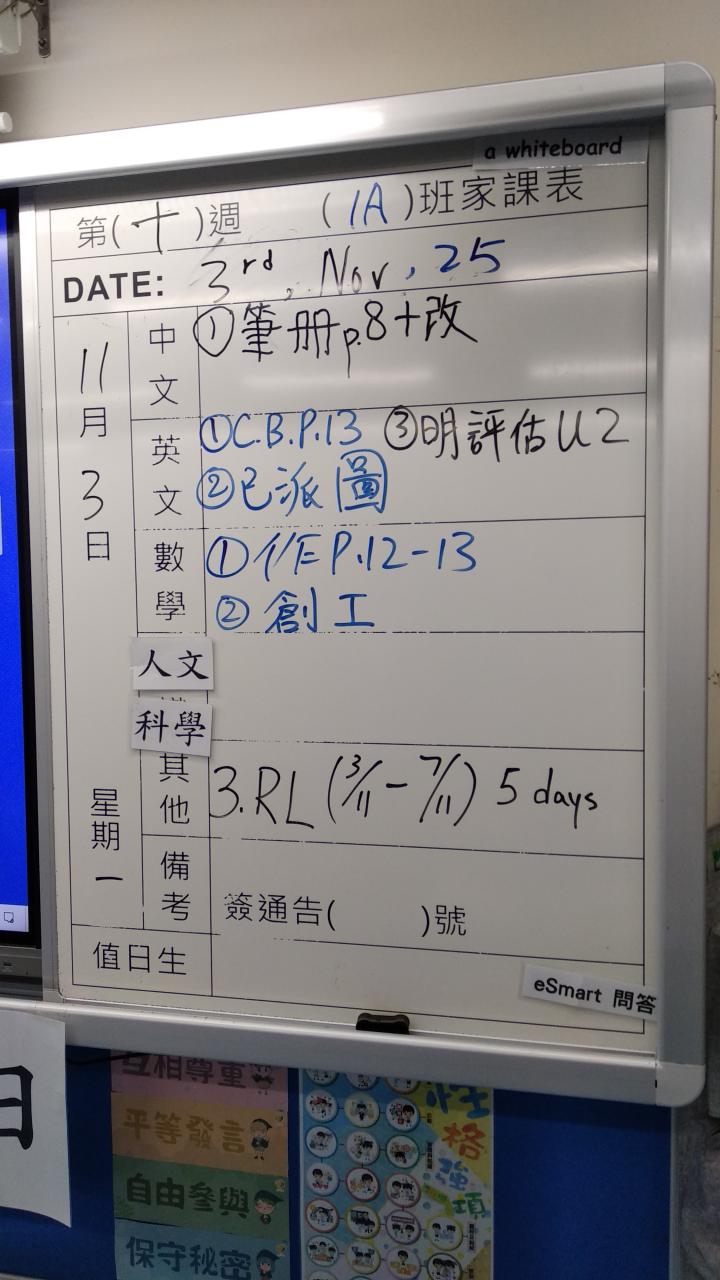 a whiteboard
第(十)週 (1A)班家課表
DATE: 3rd, Nov, 25
11月3日 星期一
中文 ①筆冊p.8+改
英文 ①C.B.P.13 ③明評估U2
②已派圖
數學 ①作P.12-13
②創工
人文
科學
其他 3.RL (3/11-7/11) 5 days
備考 簽通告( )號
值日生
eSmart 問答
日
互相尊重
平等發言
自由參與
保守秘密
性格強項